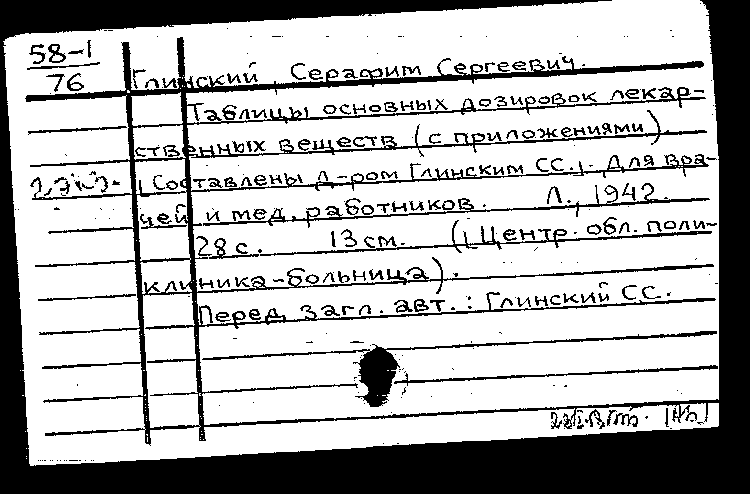 58-1
76
Глинский, Серафим Сергеевич.
Таблицы основных дозировок лекар-
ственных веществ (с приложениями).
2 экз. [Составлены д-ром Глинским С.С.]. Для вра-
чей и мед. работников. Л., 1942.
28 с. 13 см. ([Центр. обл. поли-
клиника-больница).
Перед загл. авт.: Глинский С.С.